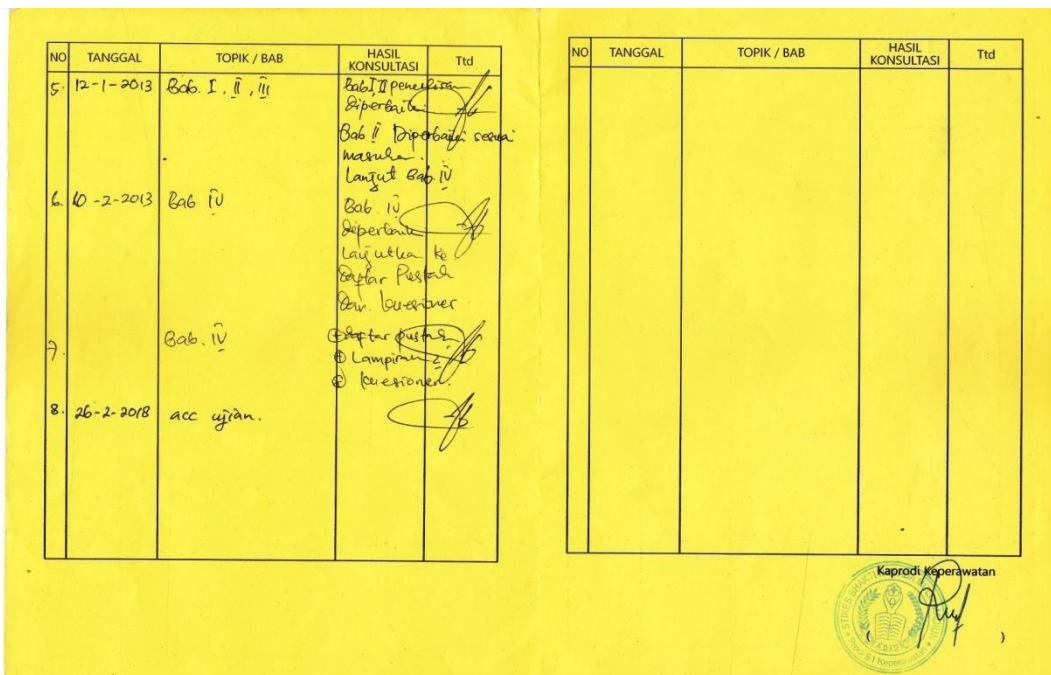 NO TANGGAL TOPIK / BAB HASIL KONSULTASI Ttd
5. 12-1-2013 Bab. I, II, III Bab I, II penulisan
diperbaiki
Bab II Diperbaiki sesuai
masukan.
Lanjut Bab IV
6. 10-2-2013 Bab IV Bab. IV
diperbaiki
Lanjutkan ke
Daftar Pustaka
Dan. kuesioner
7. Bab. IV + daftar pustaka
+ Lampiran 2
+ kuesioner.
8. 26-2-2018 acc ujian.
NO TANGGAL TOPIK / BAB HASIL KONSULTASI Ttd
Kaprodi Keperawatan
STIKES BHAKTI
Prodi S1 Keperawatan
( )